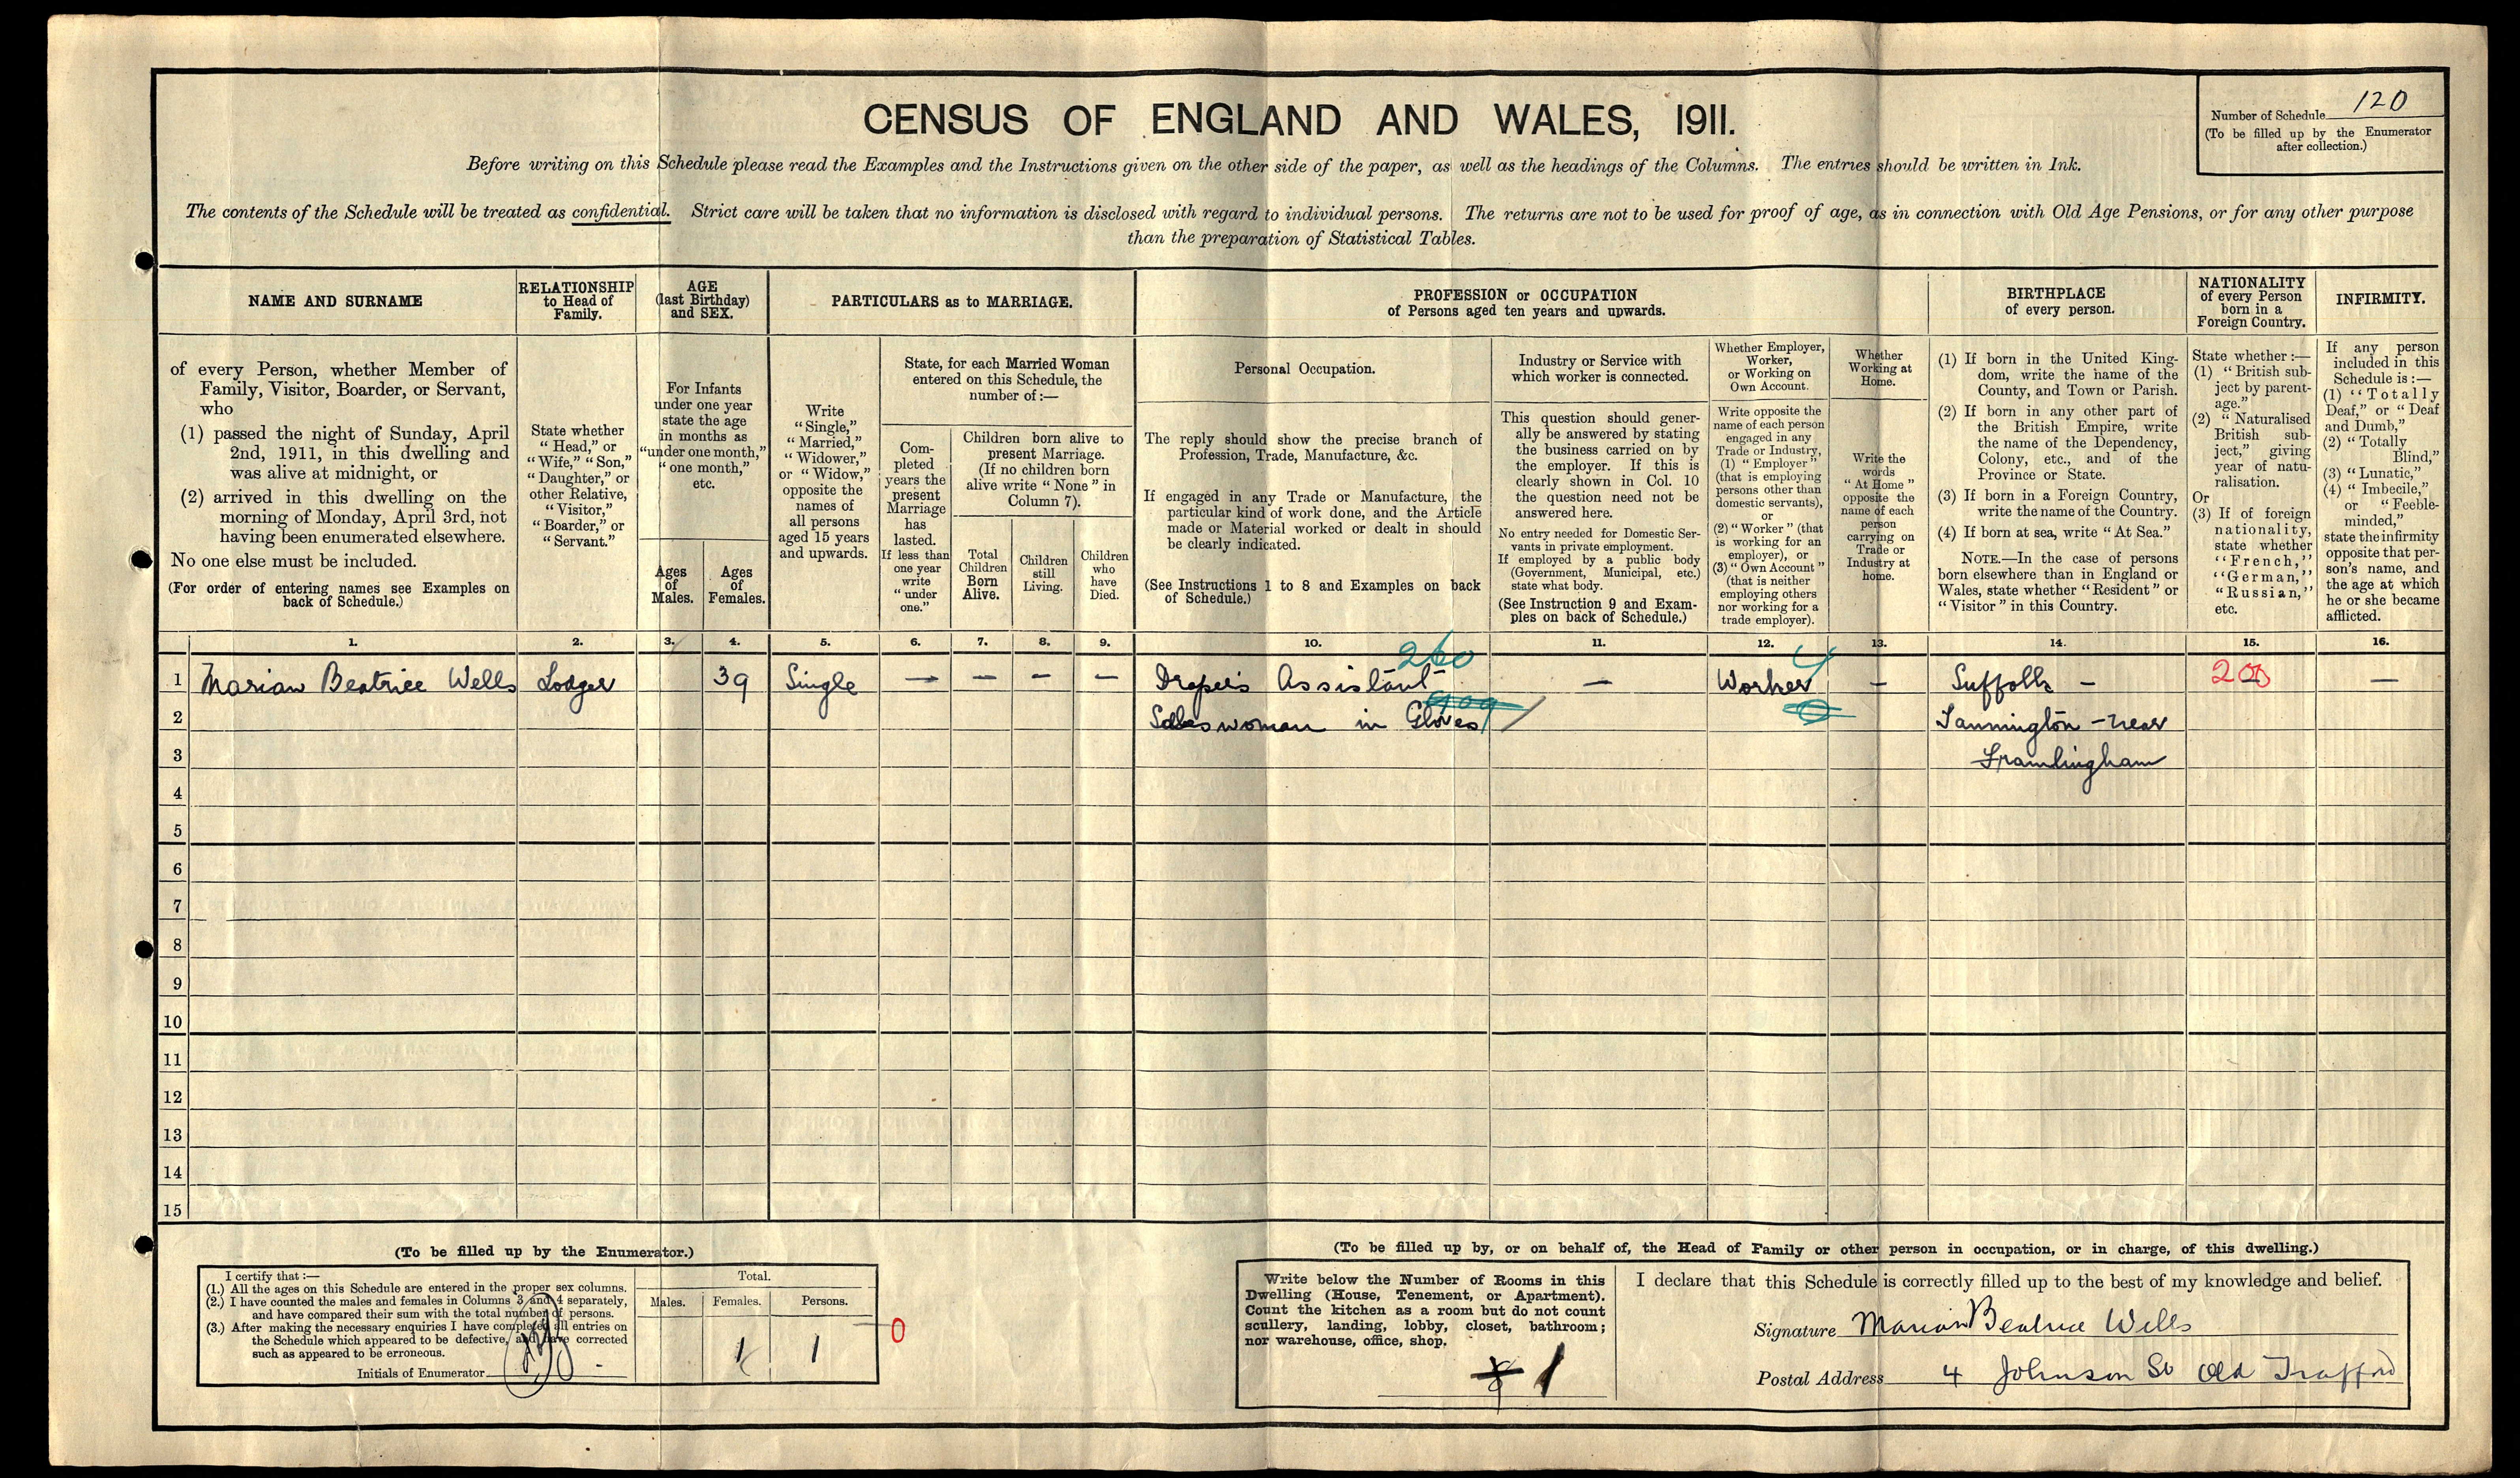 CENSUS OF ENGLAND AND WALES, 1911.
Number of Schedule 120
(To be filled up by the Enumerator
after collection.)
Before writing on this Schedule please read the Examples and the Instructions given on the other side of the paper, as well as the headings of the Columns. The entries should be written in Ink.
The contents of the Schedule will be treated as confidential. Strict care will be taken that no information is disclosed with regard to individual persons. The returns are not to be used for proof of age, as in connection with Old Age Pensions, or for any other purpose
than the preparation of Statistical Tables.
NAME AND SURNAME
of every Person, whether Member of
Family, Visitor, Boarder, or Servant,
who
(1) passed the night of Sunday, April
2nd, 1911, in this dwelling and
was alive at midnight, or
(2) arrived in this dwelling on the
morning of Monday, April 3rd, not
having been enumerated elsewhere.
No one else must be included.
(For order of entering names see Examples on
back of Schedule.)
RELATIONSHIP
to Head of
Family.
State whether
"Head," or
"Wife," "Son,"
"Daughter," or
other Relative,
"Visitor,"
"Boarder," or
"Servant."
AGE
(last Birthday)
and SEX.
For Infants
under one year
state the age
in months as
"under one month,"
"one month,"
etc.
Ages
of
Males.
Ages
of
Females.
PARTICULARS as to MARRIAGE.
Write
"Single,"
"Married,"
"Widower,"
or "Widow,"
opposite the
names of
all persons
aged 15 years
and upwards.
State, for each Married Woman
entered on this Schedule, the
number of:—
Com-
pleted
years the
present
Marriage
has
lasted.
If less than
one year
write
"under
one."
Children born alive to
present Marriage.
(If no children born
alive write "None" in
Column 7).
Total
Children
Born
Alive.
Children
still
Living.
Children
who
have
Died.
PROFESSION or OCCUPATION
of Persons aged ten years and upwards.
Personal Occupation.
The reply should show the precise branch of
Profession, Trade, Manufacture, &c.
If engaged in any Trade or Manufacture, the
particular kind of work done, and the Article
made or Material worked or dealt in should
be clearly indicated.
(See Instructions 1 to 8 and Examples on back
of Schedule.)
Industry or Service with
which worker is connected.
This question should gener-
ally be answered by stating
the business carried on by
the employer. If this is
clearly shown in Col. 10
the question need not be
answered here.
No entry needed for Domestic Ser-
vants in private employment.
If employed by a public body
(Government, Municipal, etc.)
state what body.
(See Instruction 9 and Exam-
ples on back of Schedule.)
Whether Employer,
Worker,
or Working on
Own Account.
Write opposite the
name of each person
engaged in any
Trade or Industry,
(1) "Employer"
(that is employing
persons other than
domestic servants),
or
(2) "Worker" (that
is working for an
employer), or
(3) "Own Account"
(that is neither
employing others
nor working for a
trade employer).
Whether
Working at
Home.
Write the
words
"At Home"
opposite the
name of each
person
carrying on
Trade or
Industry at
home.
BIRTHPLACE
of every person.
(1) If born in the United King-
dom, write the name of the
County, and Town or Parish.
(2) If born in any other part of
the British Empire, write
the name of the Dependency,
Colony, etc., and of the
Province or State.
(3) If born in a Foreign Country,
write the name of the Country.
(4) If born at sea, write "At Sea."
NOTE.—In the case of persons
born elsewhere than in England or
Wales, state whether "Resident" or
"Visitor" in this Country.
NATIONALITY
of every Person
born in a
Foreign Country.
State whether:—
(1) "British sub-
ject by parent-
age."
(2) "Naturalised
British sub-
ject," giving
year of natu-
ralisation.
Or
(3) If of foreign
nationality,
state whether
"French,"
"German,"
"Russian,"
etc.
INFIRMITY.
If any person
included in this
Schedule is:—
(1) "Totally
Deaf," or "Deaf
and Dumb,"
(2) "Totally
Blind,"
(3) "Lunatic,"
(4) "Imbecile,"
or "Feeble-
minded,"
state the infirmity
opposite that per-
son's name, and
the age at which
he or she became
afflicted.
1. 2. 3. 4. 5. 6. 7. 8. 9. 10. 11. 12. 13. 14. 15. 16.
260
1 Marian Beatrice Wells Lodger 39 Single — — — — Draper's Assistant — Worker — Suffolk — —
2 Saleswoman in Gloves Tannington - near
3 Framlingham
4
5
6
7
8
9
10
11
12
13
14
15
(To be filled up by the Enumerator.)
I certify that:—
(1.) All the ages on this Schedule are entered in the proper sex columns.
(2.) I have counted the males and females in Columns 3 and 4 separately,
and have compared their sum with the total number of persons.
(3.) After making the necessary enquiries I have completed all entries on
the Schedule which appeared to be defective, and have corrected
such as appeared to be erroneous.
Initials of Enumerator
Total.
Males. Females. Persons.
1 1
0
(To be filled up by, or on behalf of, the Head of Family or other person in occupation, or in charge, of this dwelling.)
Write below the Number of Rooms in this
Dwelling (House, Tenement, or Apartment).
Count the kitchen as a room but do not count
scullery, landing, lobby, closet, bathroom;
nor warehouse, office, shop.
8 1
I declare that this Schedule is correctly filled up to the best of my knowledge and belief.
Signature Marian Beatrice Wells
Postal Address 4 Johnson St Old Trafford